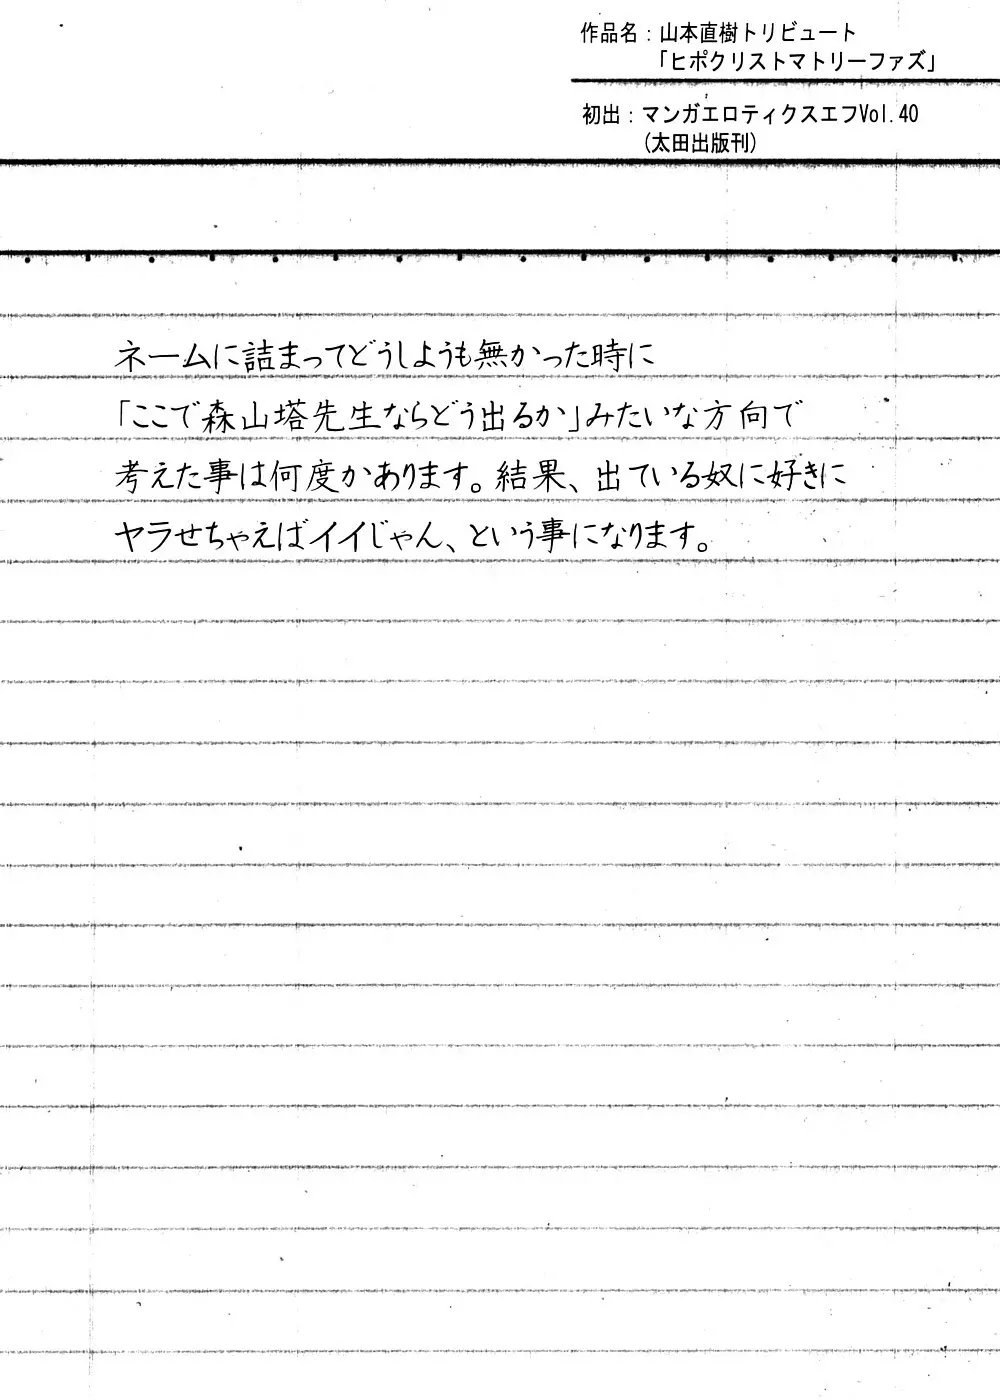 作品名：山本直樹トリビュート
「ヒポクリストマトリーファズ」
初出：マンガエロティクスエフVol.40
(太田出版刊)
ネームに詰まってどうしようも無かった時に
「ここで森山塔先生ならどう出るか」みたいな方向で
考えた事は何度かあります。結果、出ている奴に好きに
ヤラせちゃえばイイじゃん、という事になります。